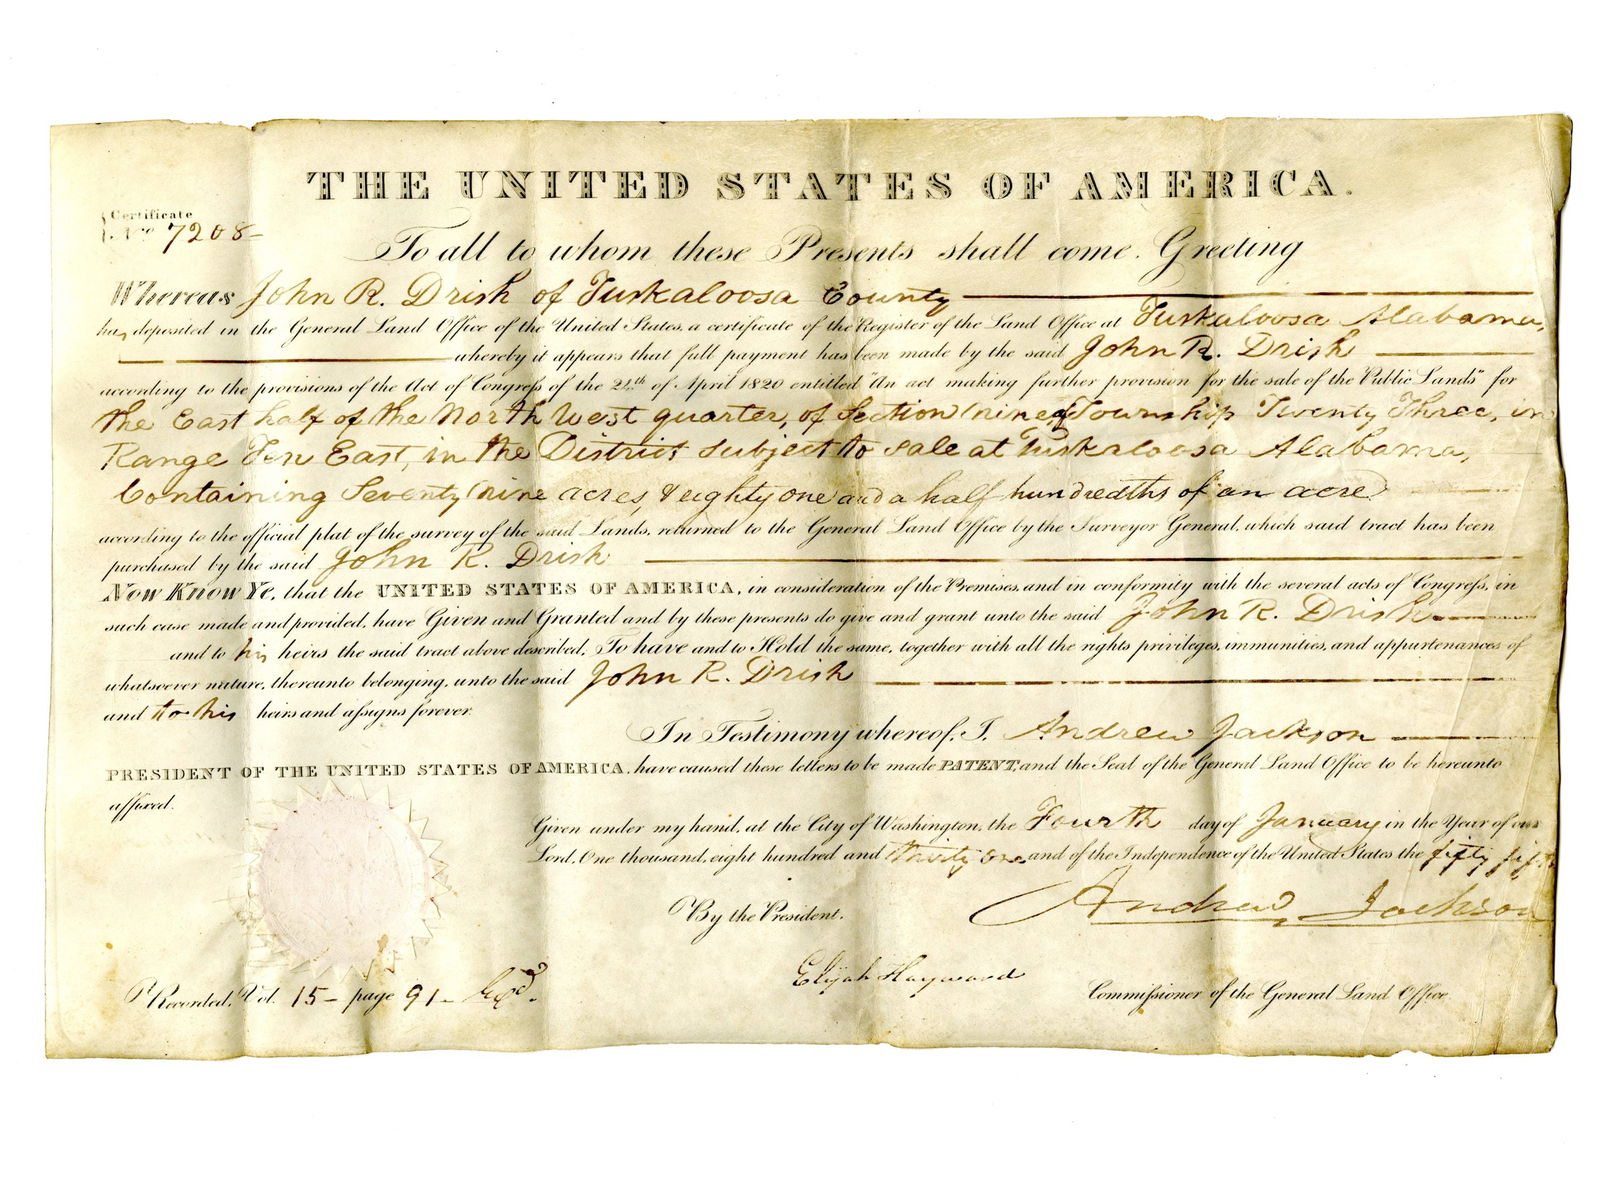 THE UNITED STATES OF AMERICA.
Certificate
No 7208
To all to whom these Presents shall come, Greeting
Whereas John R. Drish of Tuskaloosa County
has deposited in the General Land Office of the United States, a certificate of the Register of the Land Office at Tuskaloosa Alabama,
whereby it appears that full payment has been made by the said John R. Drish
according to the provisions of the Act of Congress of the 24th of April 1820 entitled "An act making further provision for the sale of the Public Lands" for
the East half of the North West quarter, of Section nine, of Township Twenty Three, in
Range Ten East, in the District subject to sale at Tuskaloosa Alabama,
Containing Seventy nine acres, & eighty one and a half hundredths of an acre
according to the official plat of the survey of the said Lands, returned to the General Land Office by the Surveyor General, which said tract has been
purchased by the said John R. Drish
Now Know Ye, that the UNITED STATES OF AMERICA, in consideration of the Premises, and in conformity with the several acts of Congress, in
such case made and provided, have Given and Granted and by these presents do give and grant unto the said John R. Drish
and to his heirs the said tract above described, To have and to Hold the same, together with all the rights privileges, immunities, and appurtenances of
whatsoever nature, thereunto belonging, unto the said John R. Drish
and to his heirs and assigns forever.
In Testimony whereof, I, Andrew Jackson
PRESIDENT OF THE UNITED STATES OF AMERICA, have caused these letters to be made PATENT, and the Seal of the General Land Office to be hereunto
affixed.
Given under my hand, at the City of Washington, the Fourth day of January in the Year of our
Lord, One thousand, eight hundred and thirty one and of the Independence of the United States the fifty fifth
Andrew Jackson
By the President.
Elijah Hayward
Commissioner of the General Land Office
Recorded, Vol. 15 - page 91 -